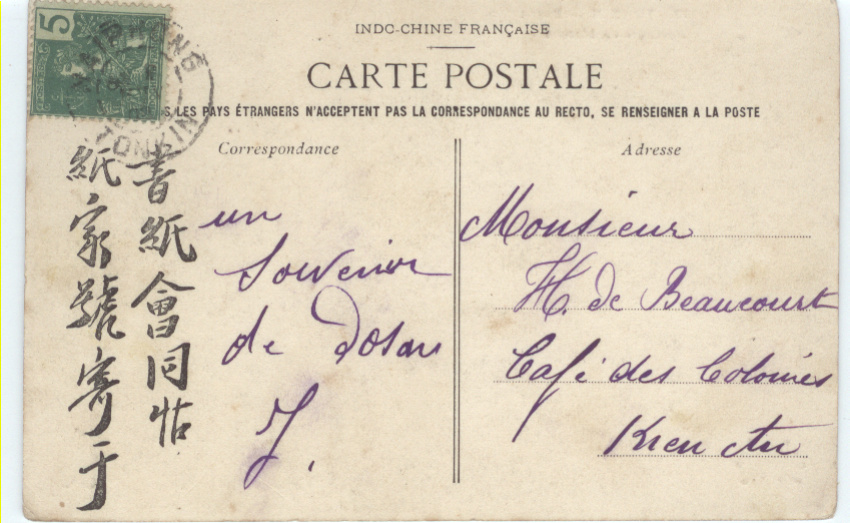 5
HAIPHONG
TONKIN
INDO-CHINE FRANÇAISE
CARTE POSTALE
LES PAYS ÉTRANGERS N'ACCEPTENT PAS LA CORRESPONDANCE AU RECTO, SE RENSEIGNER A LA POSTE
Correspondance
un
Souvenir
de Dosan
J.
Adresse
Monsieur
H. de Beaucourt
Café des Colonies
Kien An
書紙會同
紙家號寄于